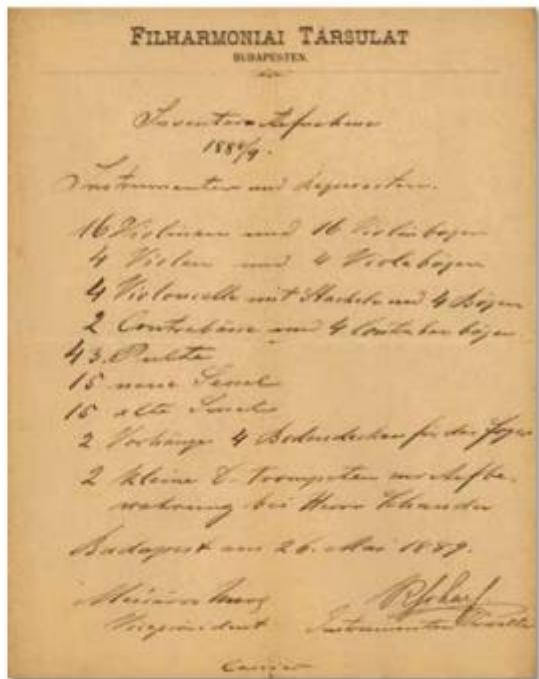 FILHARMONIAI TÁRSULAT
BUDAPESTEN.
Inventar-Aufnahme
1888/9.
Instrumenten und Requisiten.
16 Violinen und 16 Violinbögen
4 Violen und 4 Violabögen
4 Violoncelle mit Stacheln und 4 Bögen
2 Contrabässe und 4 Contrabassbögen
43 Pulte
15 neue Sessel
15 alte Sessel
2 Vorhänge 4 Bodendecken für das Foyer
2 kleine Trompeten zur Aufbe-
wahrung bei Herrn
Budapest am 26. Mai 1889.
Vicepräsident Instrumenten